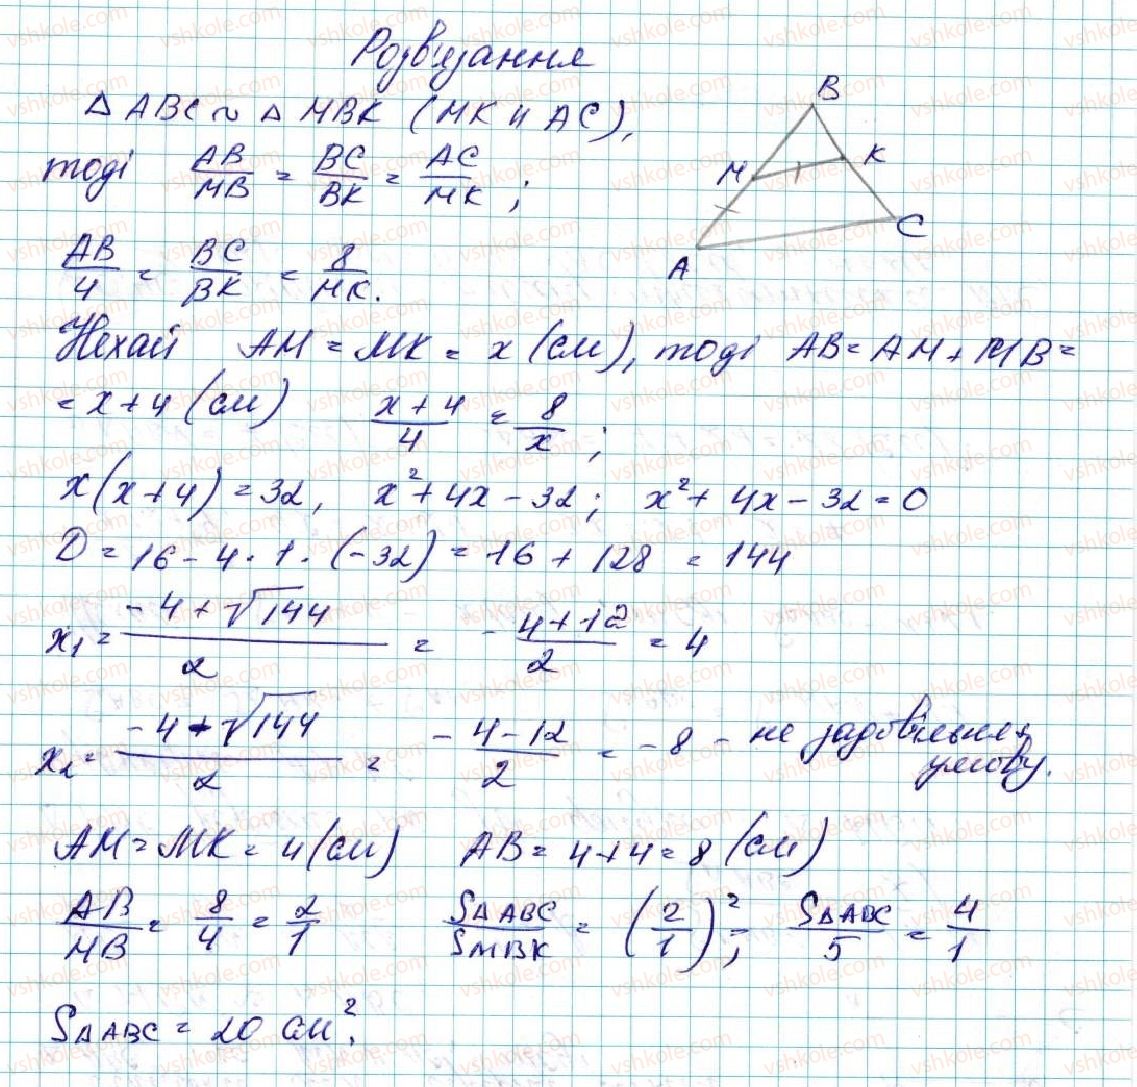 Розв'язання
△ ABC ~ △ MBK (MK ∥ AC),
тоді AB/MB = BC/BK = AC/MK;
AB/4 = BC/BK = 8/MK.
Нехай AM = MK = x (см), тоді AB = AM + MB =
= x + 4 (см) (x+4)/4 = 8/x;
x(x+4) = 32, x² + 4x - 32; x² + 4x - 32 = 0
D = 16 - 4 · 1 · (-32) = 16 + 128 = 144
x₁ = (-4 + √144)/2 = - (4+12)/2 = 4
x₂ = (-4 - √144)/2 = - (4-12)/2 = -8 - не задовільняє
умову.
AM = MK = 4 (см) AB = 4+4 = 8 (см)
AB/MB = 8/4 = 2/1 S△ABC/SMBK = (2/1)²; S△ABC/5 = 4/1
S△ABC = 20 см².
B
K
M
C
A
vshkole.com